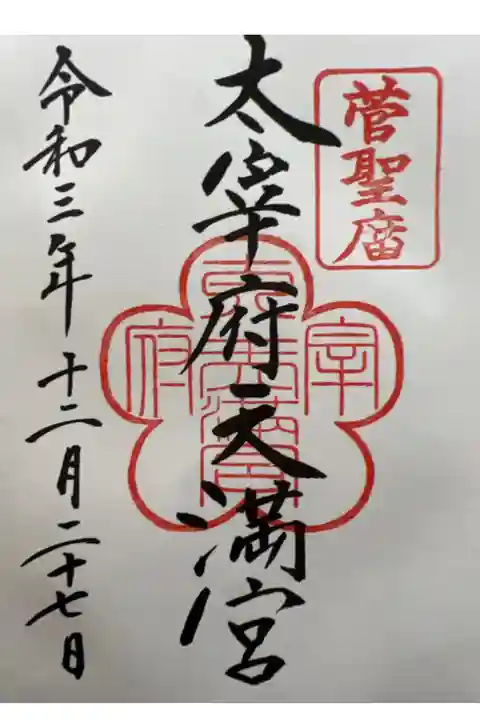 菅聖庿
太宰府天満宮
宰
府
令和三年十二月二十七日